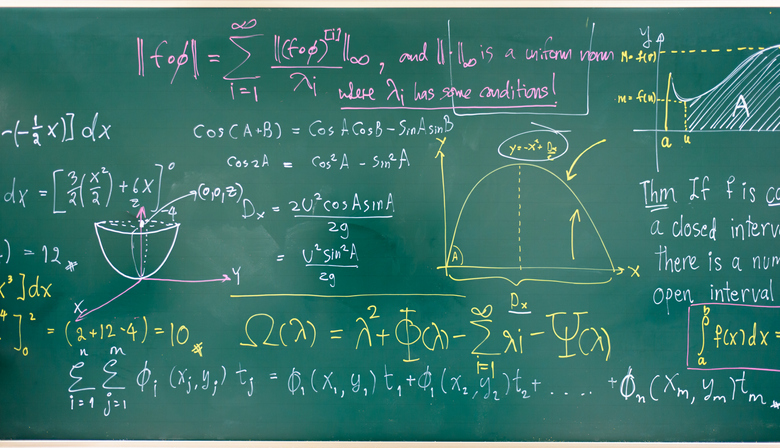 ‖foφ‖ = ∞ Σ i=1 ‖(foφ)^[i]‖∞ / λi , and ‖·‖∞ is a uniform norm
where λi has some conditions!
-(-½x)] dx
cos(A+B) = cosAcosB - sinAsinB
cos2A = cos²A - sin²A
dx = [3/2(x²/2) + 6x]⁰ -4
z
(0,0,z)
Dx = 2U²cosAsinA / 2g
= U²sin²A / 2g
.) = 12 *
Y
X
x³]dx
⁴]²₀ = (2+12-4) = 10 *
Y
A
X
Dx
y
M = f(v)
m = f(u)
A
a u
Thm If f is
a closed interv
there is a num
open interval
b ∫ a f(x)dx =
Ω(λ) = λ² + Φ(λ) - ∞ Σ i=1 λi - Ψ(λ)
n Σ i=1 m Σ j=1 φi (xj, yj) tj = φ1(x1, y1) t1 + φ1(x2, y2) t2 + ..... + φn(xm, ym) tm *